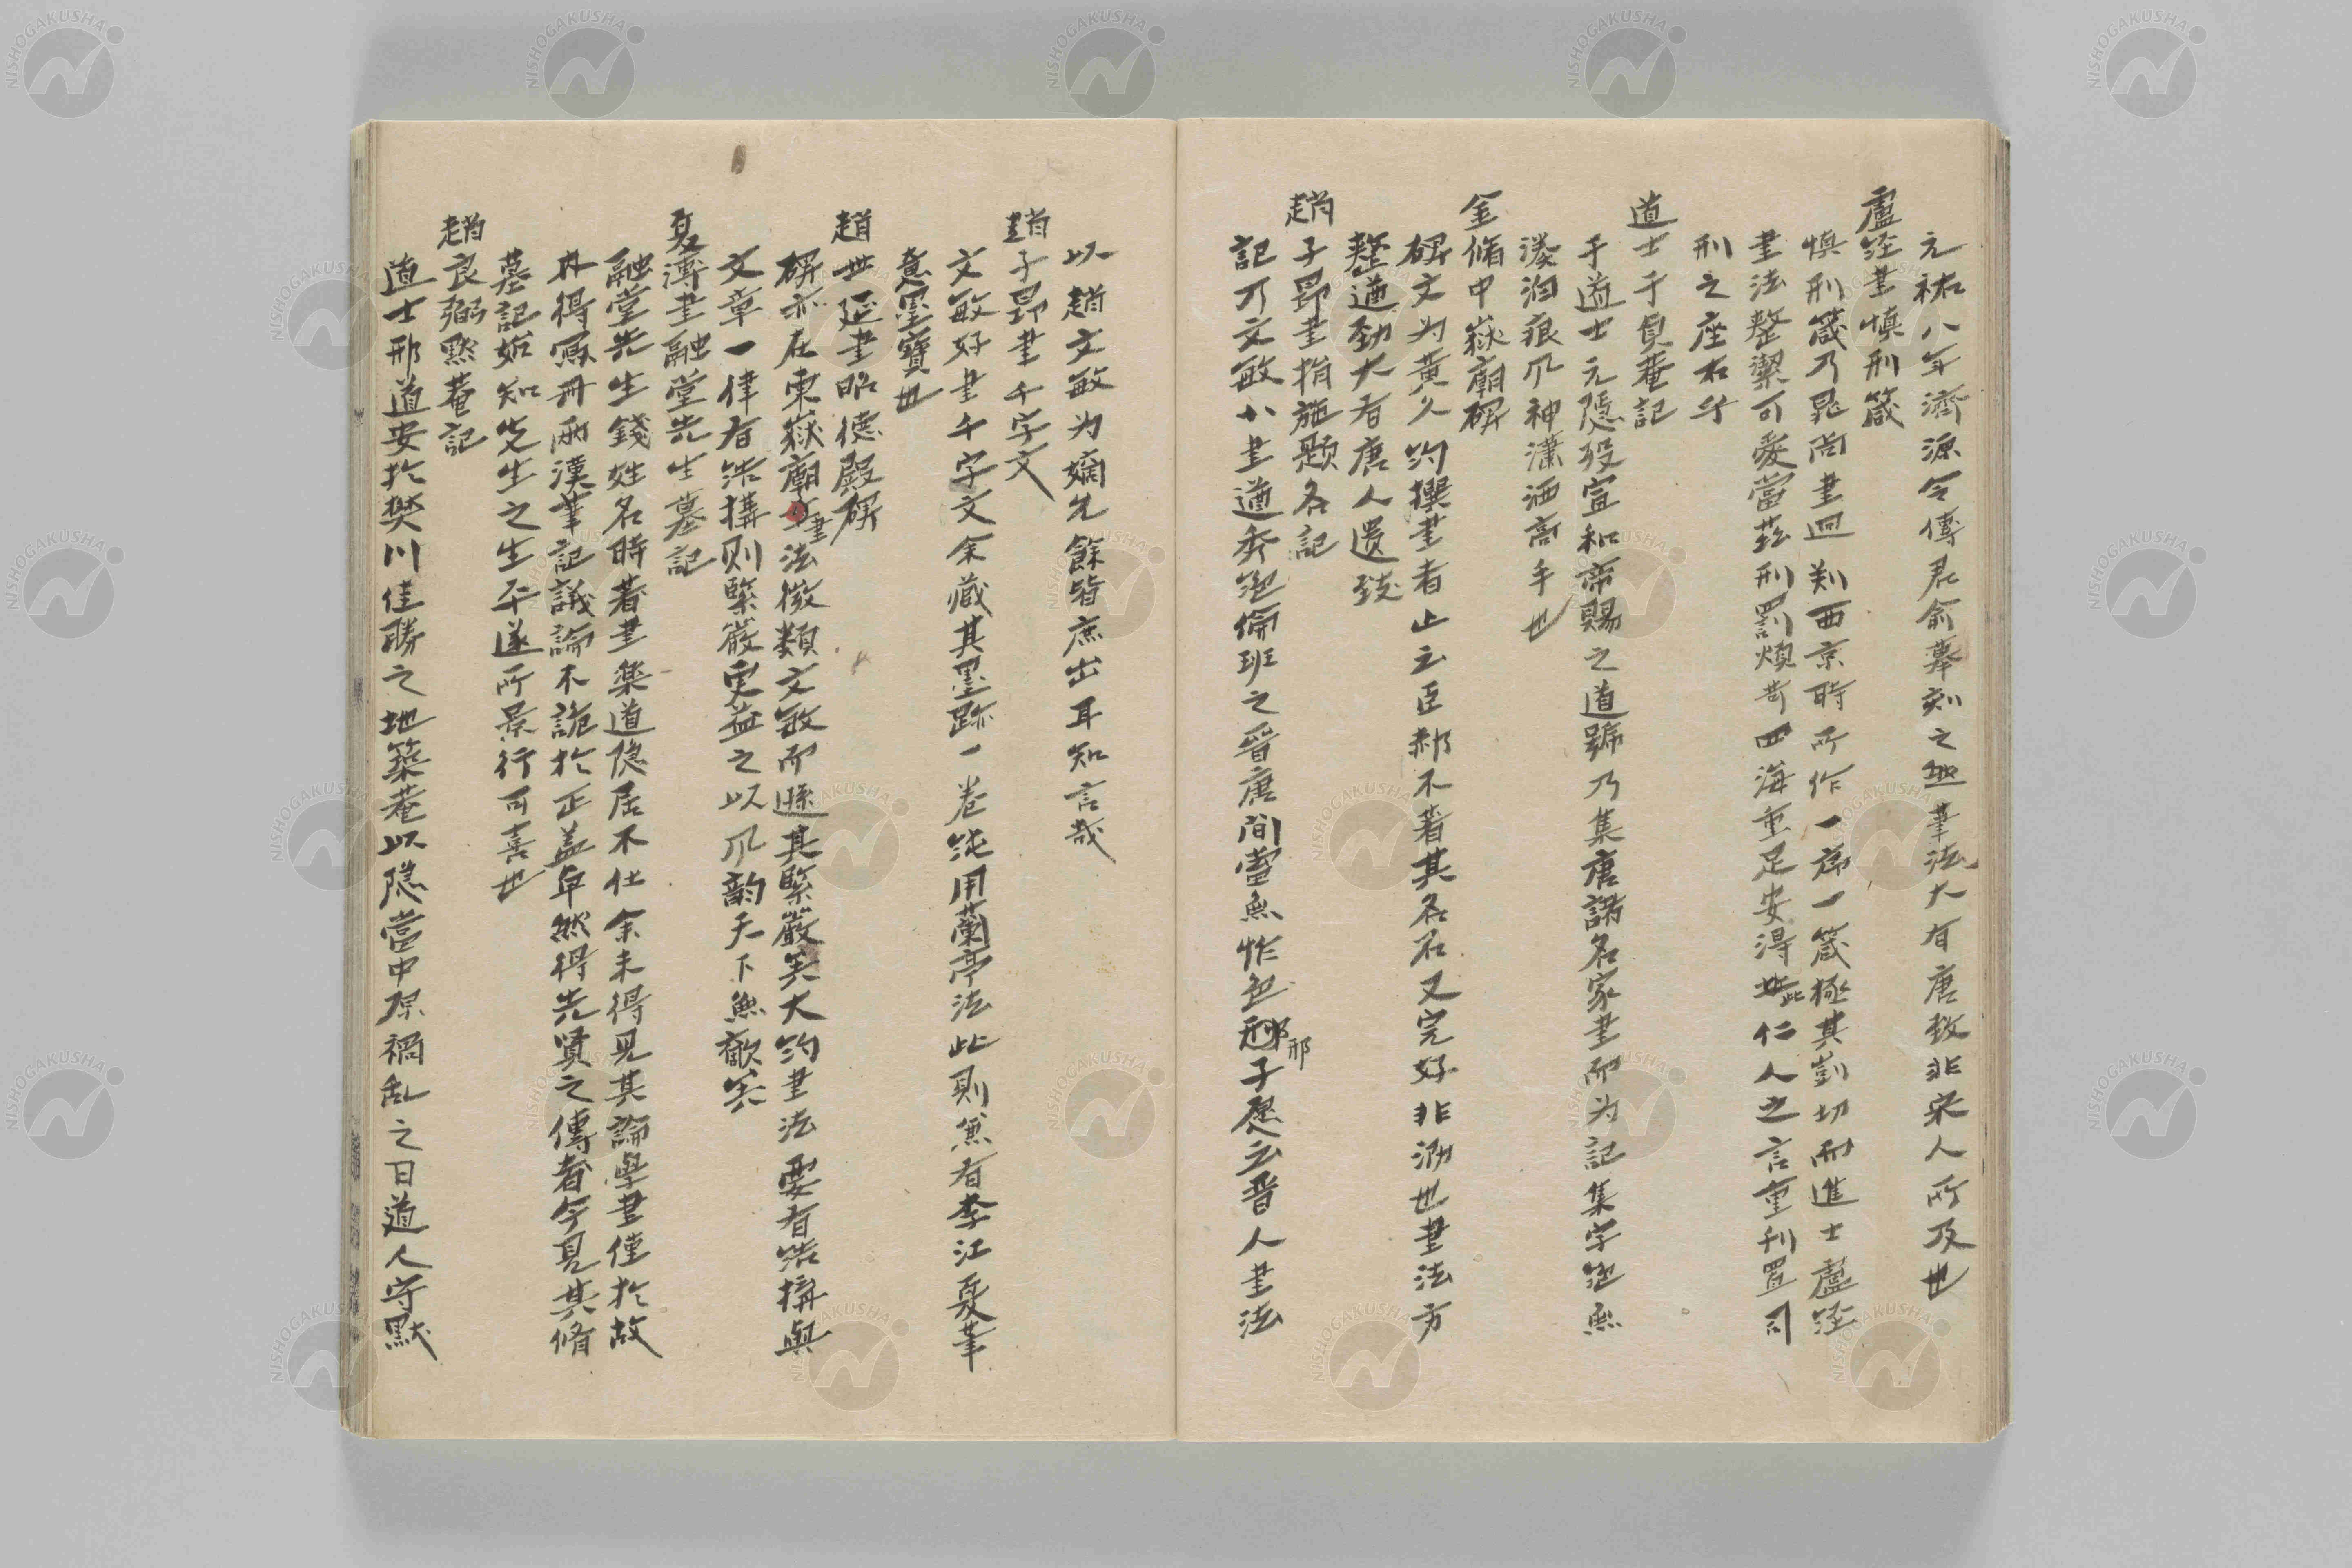 元祐八年濟源令傅君俞摹刻之然筆法大有唐致非宋人所及也
盧經書慎刑箴
慎刑箴乃晁尚書迥判西京時所作一序一箴極其剴切而進士盧經
書法整潔可愛當茲刑罰煩苛四海重足安得此仁人之言重刊置司
刑之座右乎
道士于真菴記
于道士元隱歿宣和帝賜之道號乃集唐諸名家書而为記集字絕無
湊泊痕爪神瀟洒高手也
金脩中嶽廟碑
碑文为黃久約撰書者止云臣郝不著其名石又完好非泐也書法方
整遒勁大有唐人遺致
趙子昂書指施題名記
記乃文敏小書遒秀絕倫班之晉唐間當無怍色邢子愿云晉人書法
以趙文敏为嫡允餘皆庶出耳知言哉
趙子昂書千字文
文敏好書千字文余藏其墨跡一卷純用蘭亭法此則兼有李江夏筆
意墨寶也
趙世延書昭德殿碑
碑亦在東嶽廟書法微類文敏而遜其緊嚴矣大約書法要有結搆與
文章一律有結搆則緊嚴更益之以爪韵天下無敵矣
夏溥書融堂先生墓記
融堂先生錢姓名時著書樂道隐居不仕余未得見其論學書僅於故
冊得寫冊兩漢筆記議論不詭於正蓋卓然得先賢之傳者今見其脩
墓記始知先生之生平遂所景行可喜也
趙良弼默菴記
道士邢道安於樊川佳勝之地築菴以隐當中原禍乱之日道人守默
NISHOGAKUSHA